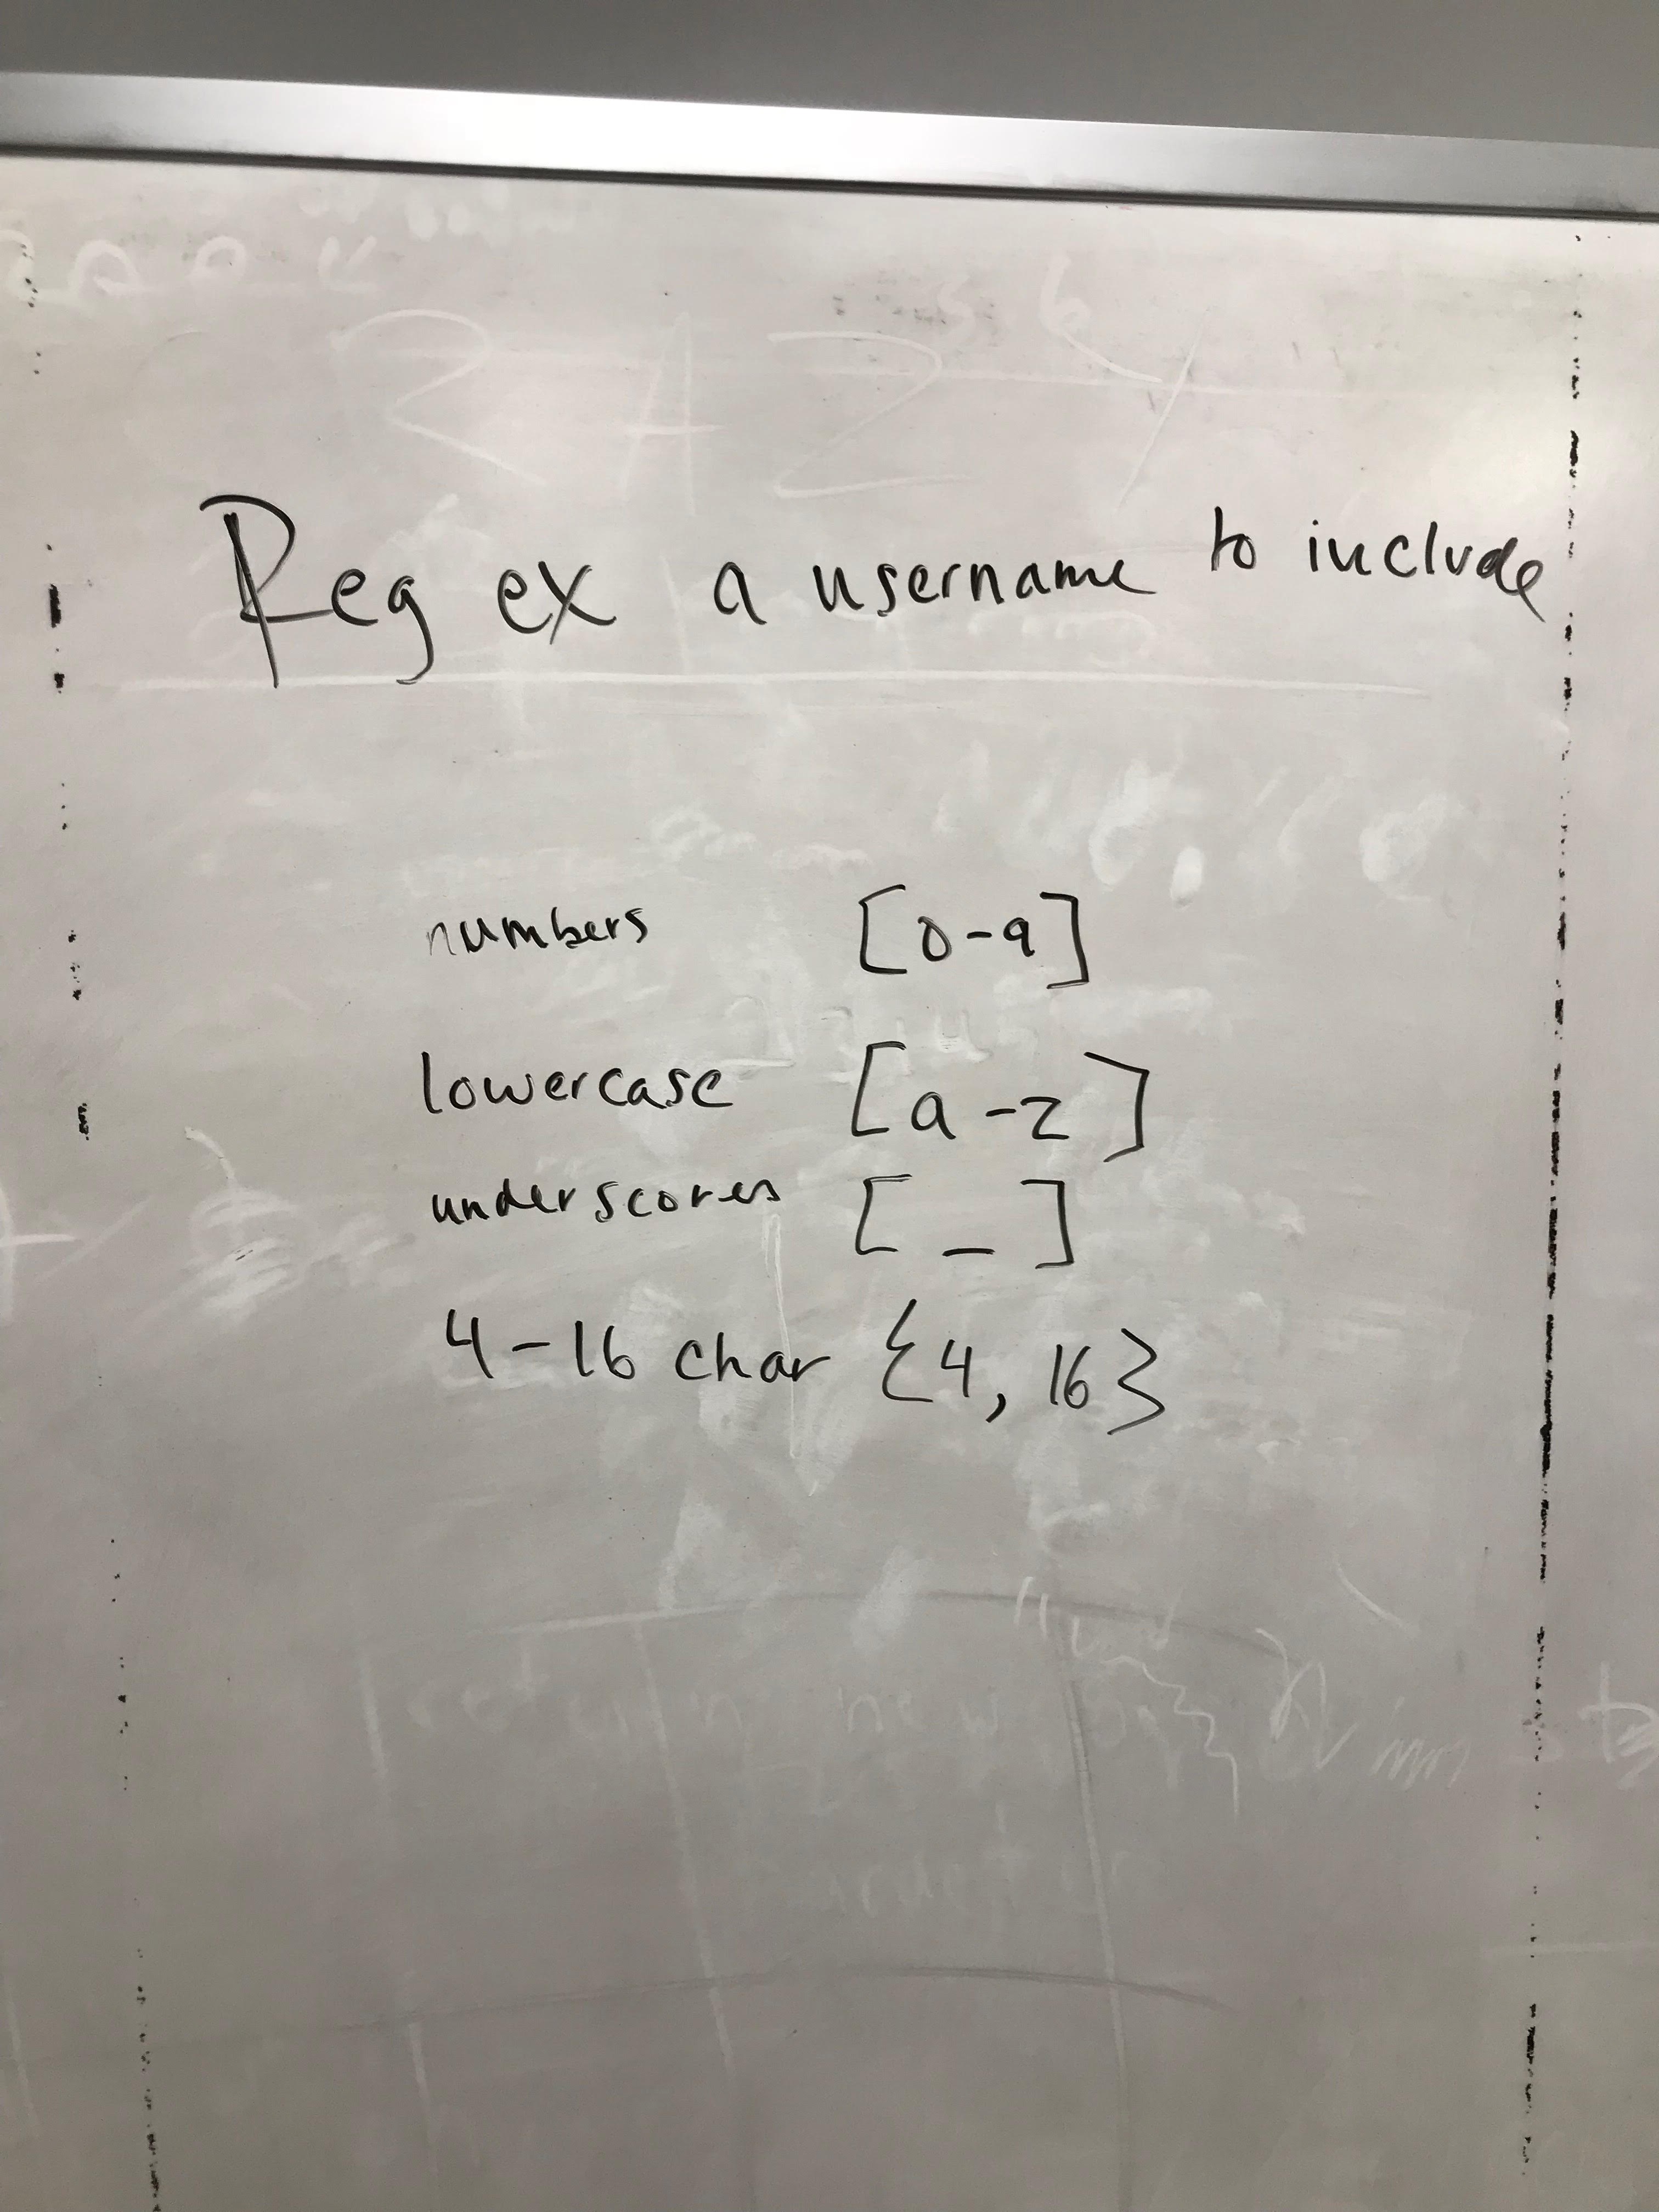 Reg ex a username to include
numbers [0-9]
lowercase [a-z]
underscores [_]
4-16 char {4, 16}
return new